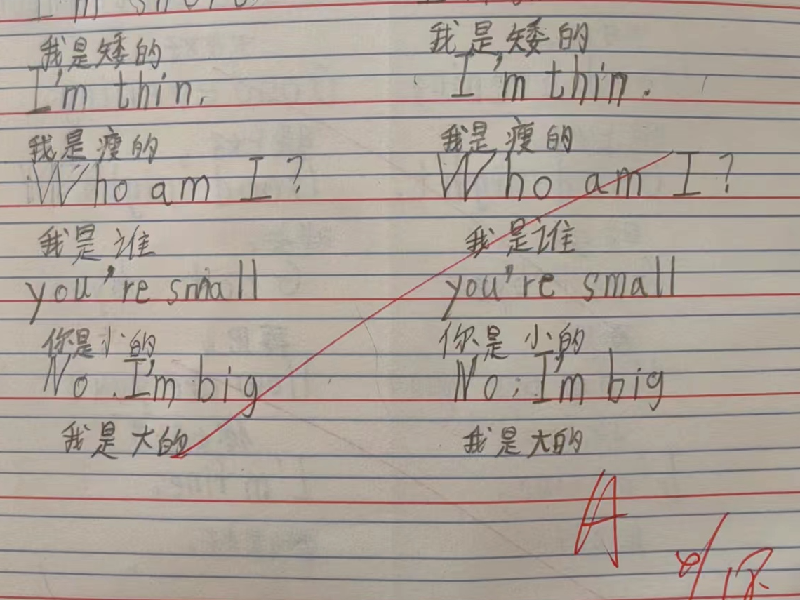 我是矮的 我是矮的
I'm thin. I'm thin.
我是瘦的 我是瘦的
Who am I? Who am I?
我是谁 我是谁
you're small you're small
你是小的 你是小的
No. I'm big No. I'm big
我是大的 我是大的
A